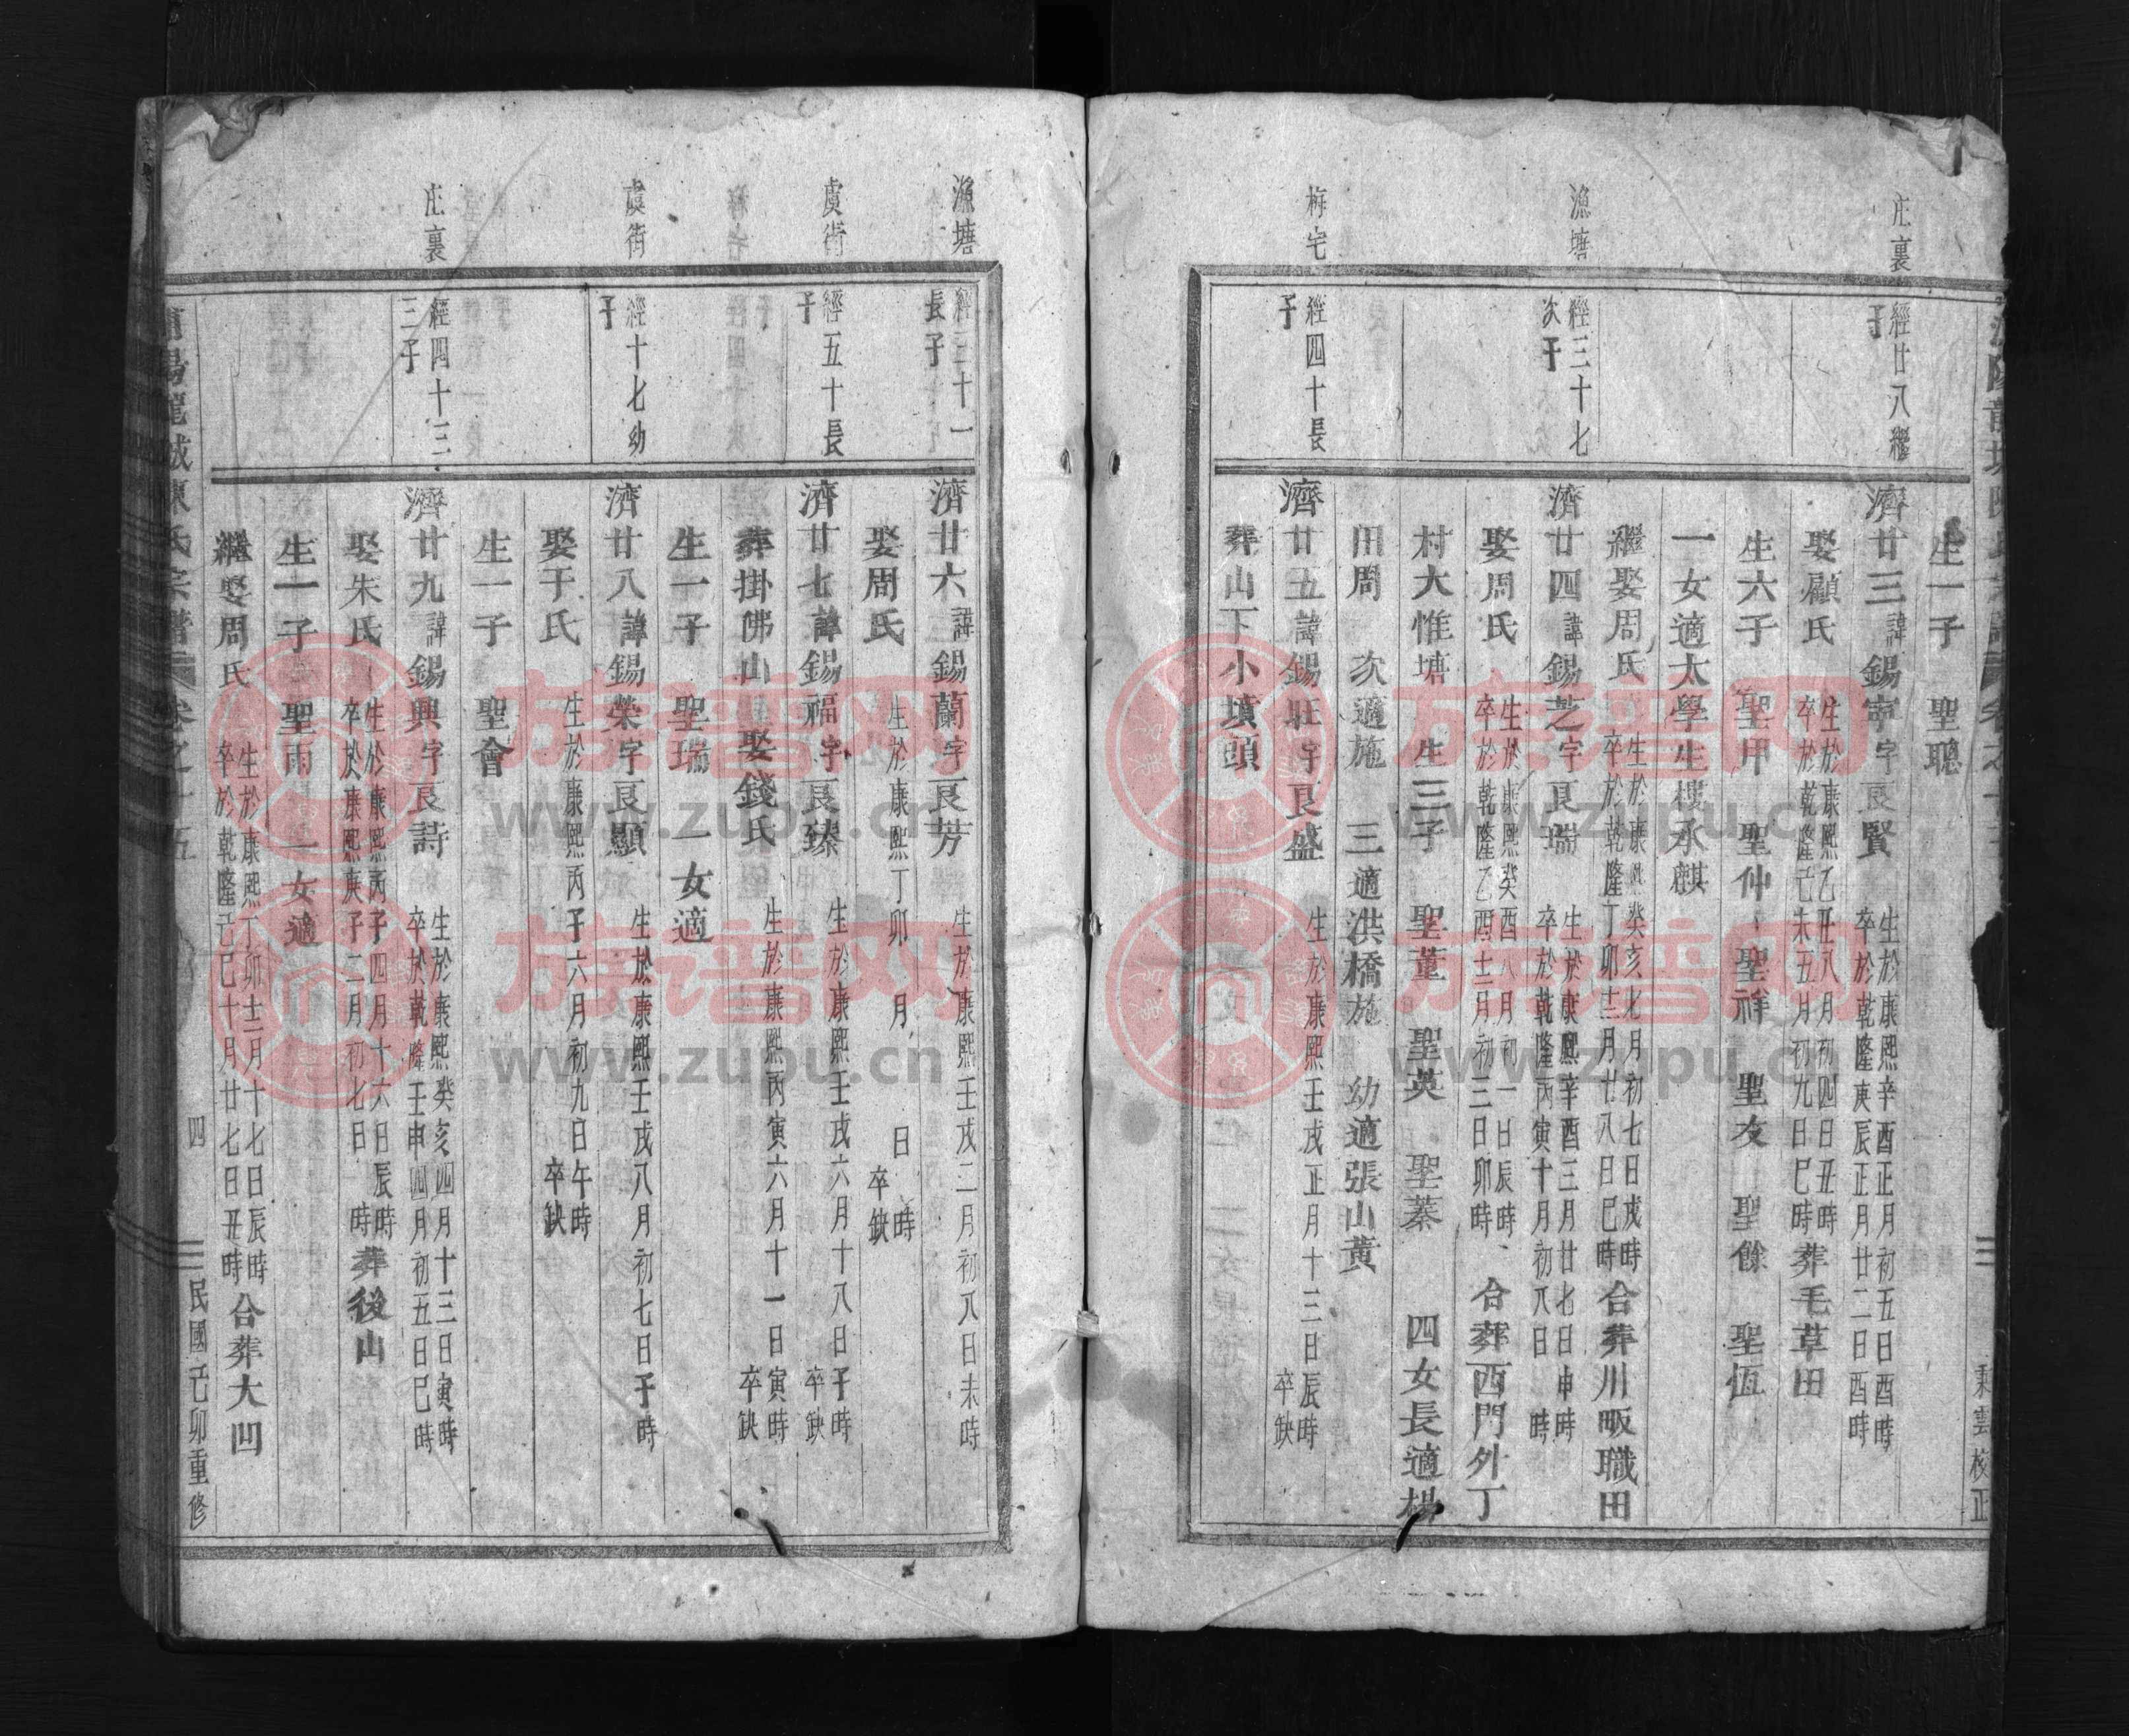 庄裏
經廿八繼
子
漁塘
經三十七
次子
栴宅
經四十長
子
生一子 聖聰
濟廿三諱錫寧字良賢 生於康熙辛酉正月初五日酉時
卒於乾隆庚辰正月廿二日酉時
娶顧氏 生於康熙乙丑八月初四日丑時
卒於乾隆己未五月初九日巳時 葬毛草田
生六子 聖甲 聖仲 聖祥 聖友 聖餘 聖恆
一女適太學生樓承麒
繼娶周氏 生於康熙癸亥七月初七日戌時
卒於乾隆丁卯十二月廿八日巳時 合葬川畈職田
濟廿四諱錫芝字良瑞 生於康熙辛酉三月廿七日申時
卒於乾隆丙寅十月初八日 時
娶周氏 生於康熙癸酉八月初一日辰時
卒於乾隆乙酉十二月初三日卯時 合葬西門外丁
村大惟塘 生三子 聖董 聖英 聖蓁 四女長適楊
田周 次適施 三適洪橋施 幼適張山黃
濟廿五諱錫旺字良盛 生於康熙壬戌正月十三日辰時
卒缺
葬山下小墳頭
秉雲校正
漁塘
經三十一
長子
虞街
經五十長
子
虞街
經十七幼
子
庄裏
經四十三
三子
濟廿六諱錫蘭字良芳 生於康熙壬戌二月初八日未時
娶周氏 生於康熙丁卯 月 日 時
卒缺
濟廿七諱錫福字良臻 生於康熙壬戌六月十八日子時
卒缺
葬掛佛山 娶錢氏 生於康熙丙寅六月十一日寅時
卒缺
生一子 聖瑞 一女適
濟廿八諱錫榮字良顯 生於康熙壬戌八月初七日子時
娶于氏 生於康熙丙子六月初九日午時
卒缺
生一子 聖會
濟廿九諱錫興字良詩 生於康熙癸亥四月十三日寅時
卒於乾隆壬申四月初五日巳時
娶朱氏 生於康熙丙子四月十六日辰時
卒於康熙庚子二月初七日 時 葬後山
生一子 聖雨 一女適
繼娶周氏 生於康熙丁卯十二月十七日辰時
卒於乾隆己巳十月廿七日丑時 合葬大凹
四
民國己卯重修
族谱网
www.zupu.cn
族谱网
www.zupu.cn
族谱网
www.zupu.cn
族谱网
www.zupu.cn